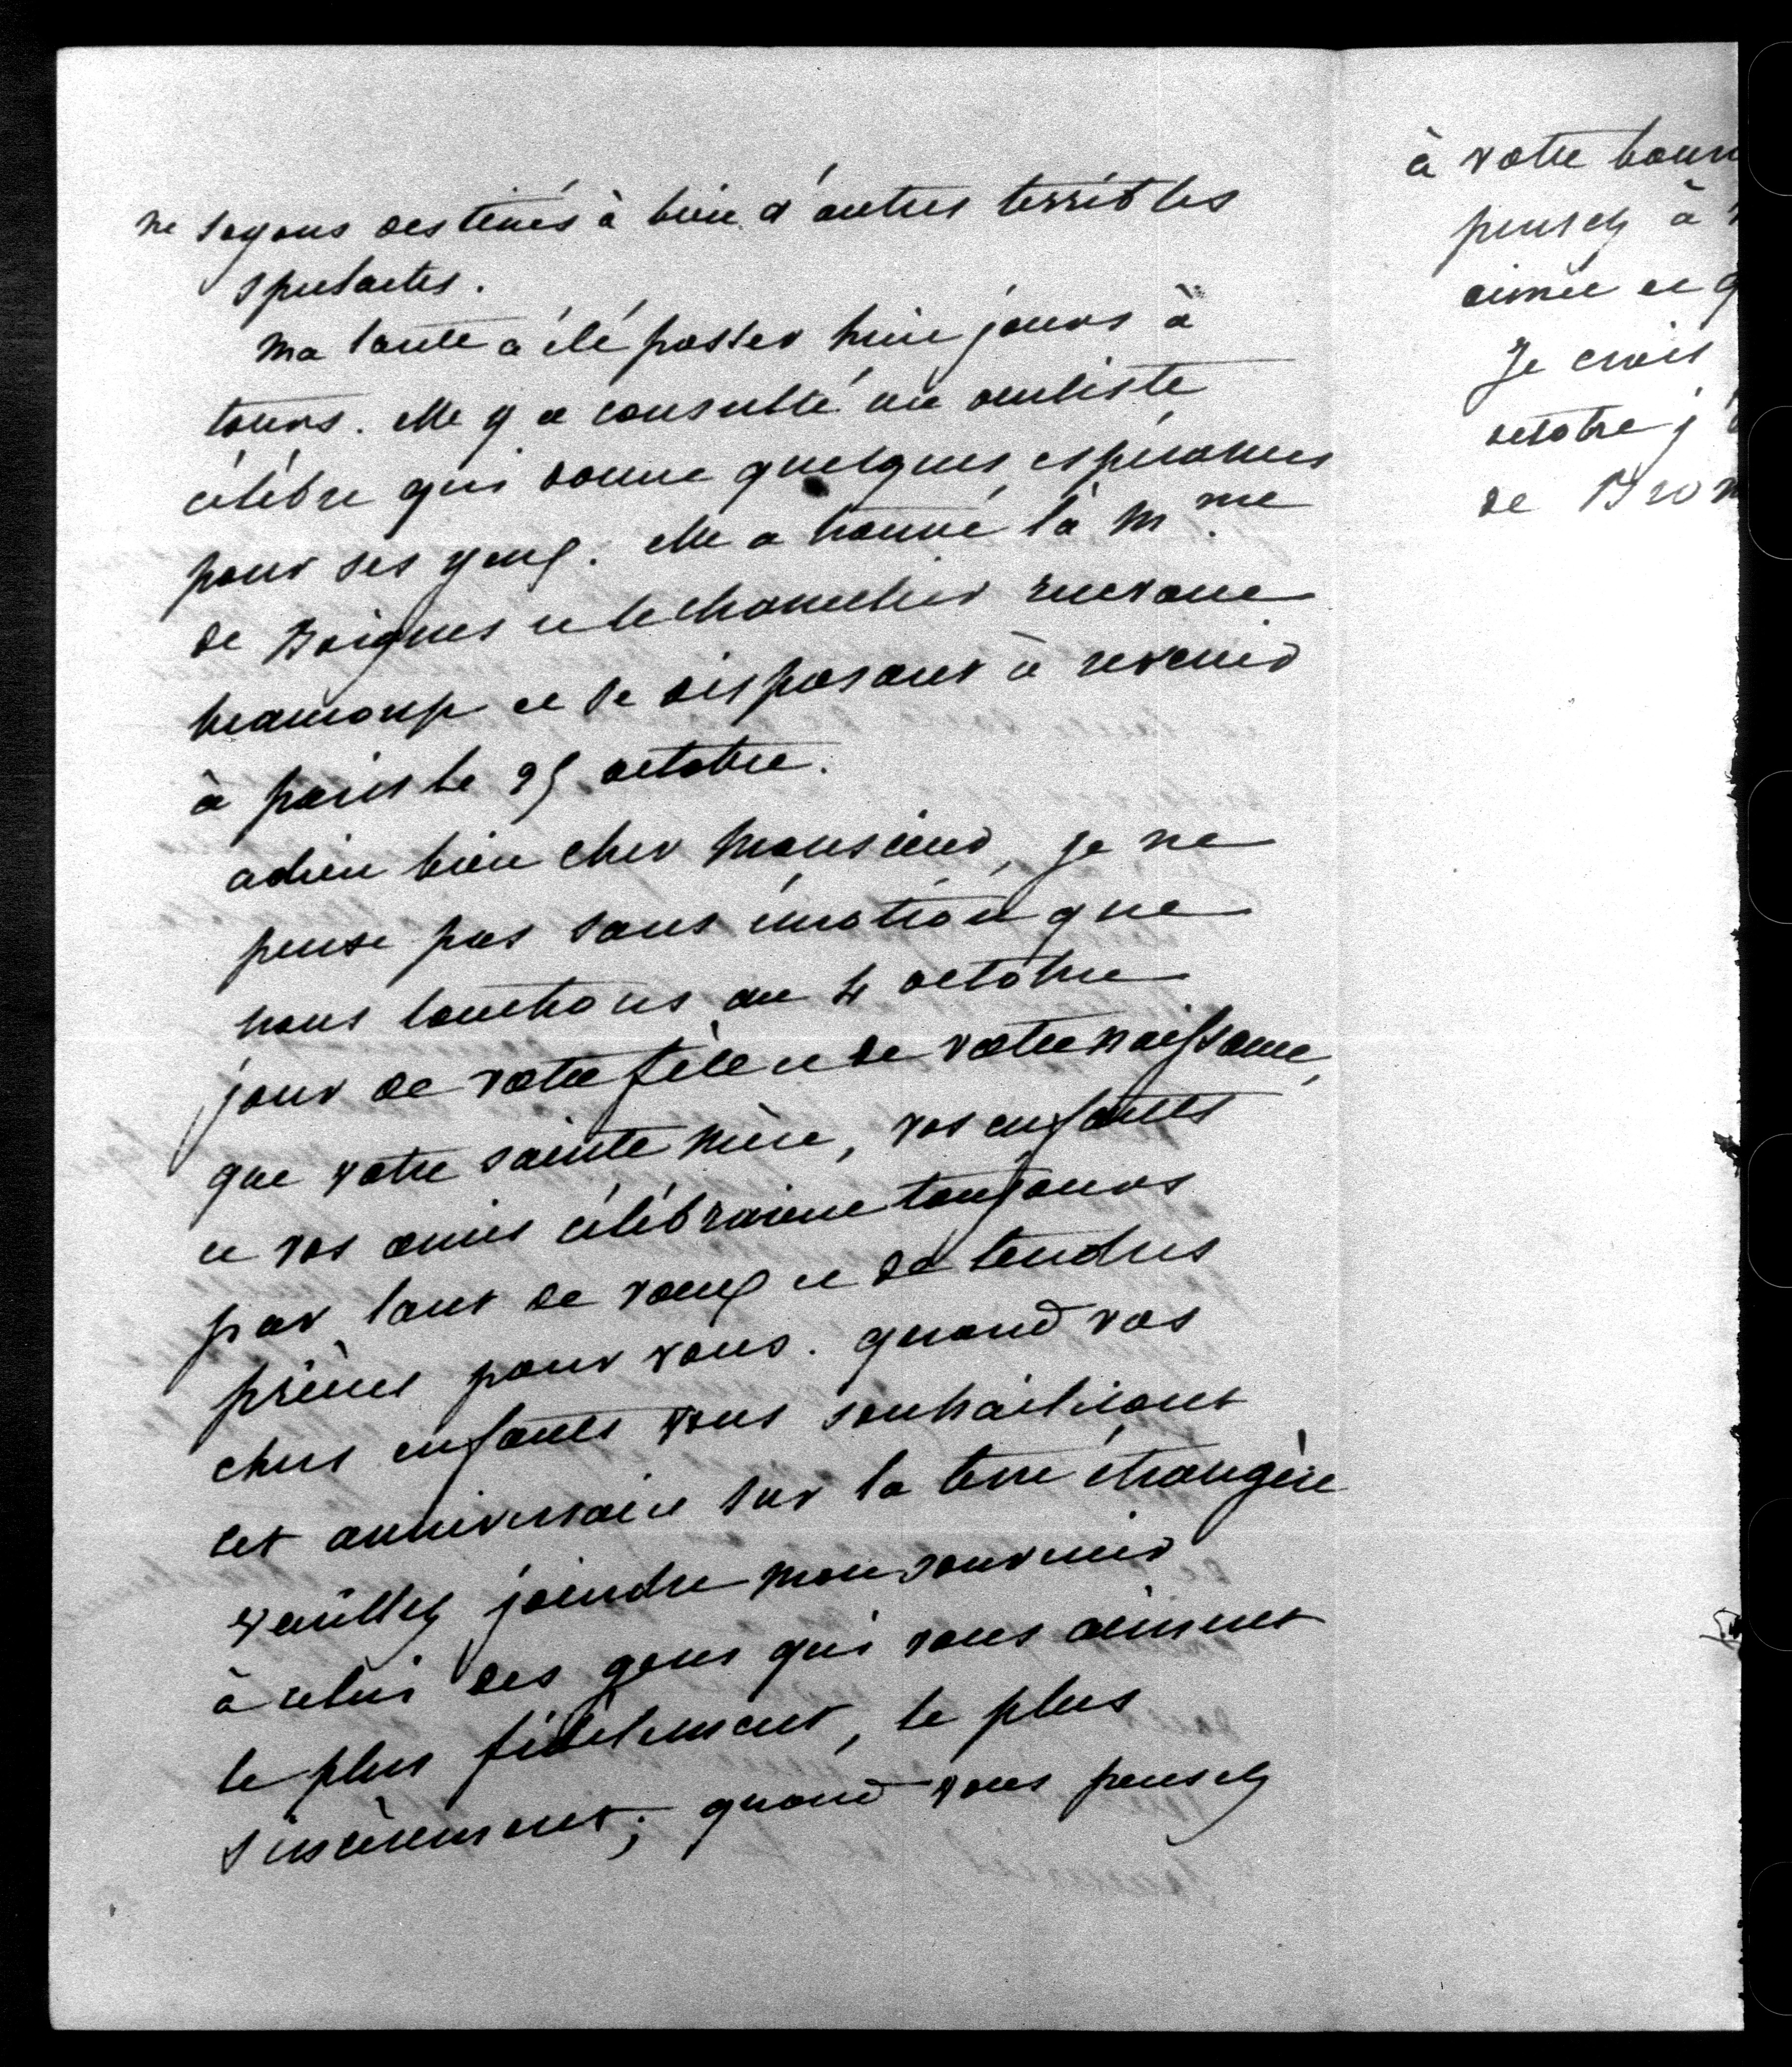 ne soyons destinés à bien d'autres terribles
spectacles.
ma tante a été passer huit jours à
tours. elle y a consulté un oculiste
célèbre qui donne quelques espérances
pour ses yeux. elle a trouvé là Mme
de Boigne et le chancelier
beaucoup et se disposant à revenir
à paris le 25 octobre.
adieu bien cher Monsieur, je ne
pense pas sans émotion que
nous touchons au 4 octobre
jour de votre fête et de votre naissance,
que votre sainte mère, vos enfants
et vos amis célébraient toujours
par tant de vœux et de tendres
prières pour vous. quand vos
chers enfants vous souhaiteront
cet anniversaire sur la terre étrangère
veuillez joindre mon souvenir
à celui des gens qui vous aiment
le plus fidèlement, le plus
sincèrement; quand vous pensez
à votre
pensez à
aimée et
Je crois
octobre j
de